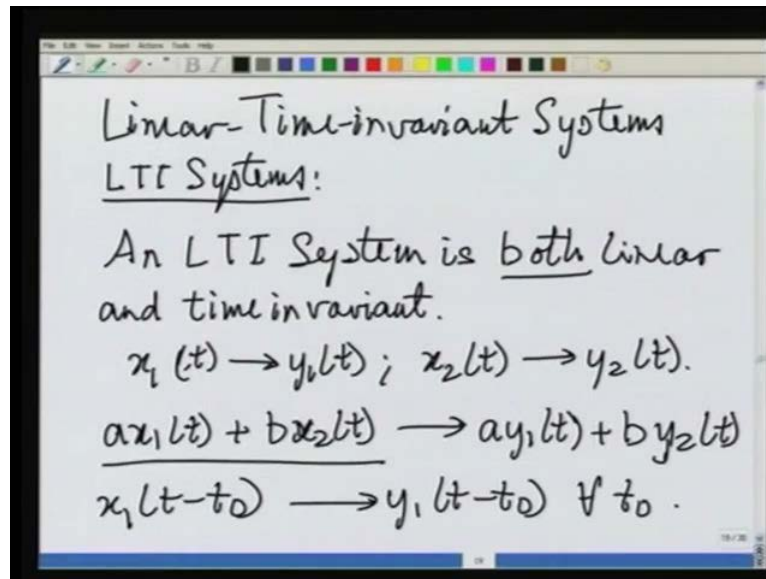 File Edit View Insert Actions Tools Help
B I
Linear-Time-invariant Systems
LTI Systems:
An LTI System is both linear
and time invariant.
x₁(t) → y₁(t) ; x₂(t) → y₂(t).
ax₁(t) + bx₂(t) → ay₁(t) + by₂(t)
x₁(t-t₀) → y₁(t-t₀) ∀ t₀.